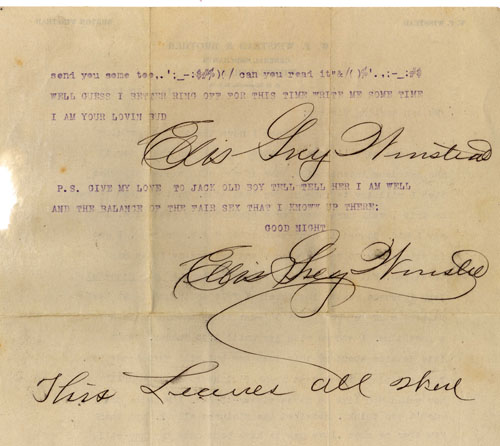 send you some too,.':_-:$#%)(/ can you read it"&/()%'.,:-_:#$
WELL GUESS I BETTER RING OFF FOR THIS TIME WRITE ME SOME TIME
I AM YOUR LOVIN BUD
Ellis Grey Winstead
P.S. GIVE MY LOVE TO JACK OLD BOY TELL TELL HER I AM WELL
AND THE BALANCE OF THE FAIR SEX THAT I KNOWY UP THERE;
GOOD NIGHT
Ellis Grey Winstead
This Leaves all